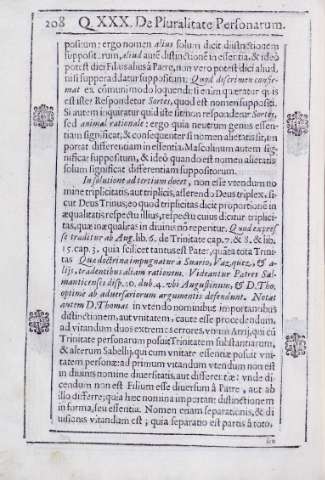 208 Q. XXX. De Pluralitate Personarum.
positum: ergo nomen alius solum dicit distinctionem
supposit. rum, aliud autē distinctionē in essentia, & ideò
potest dici Filius alius à Patre, non verò potest dici aliud,
nisi supperaddatur suppositum; Quod discrimen confir-
mat ex cōmuni modo loquendi: si enim quæratur quis
est iste? Respondetur Sortes, quod est nomen suppositi.
Si autem inquiratur quid iste sit: non respondetur Sortes,
sed animal rationale: ergo quia neutrum genus essen-
tiam significat, & consequenter si nomen alietatis sit, im
portat differentiam in essentia. Masculinum autem sig-
nificat suppositum, & ideò quando est nomen alietatis
solum significat differentiam suppositorum.
In solutione ad tertium docet, non esse vtendum no
mine triplicitatis, aut triplicis, asserendo Deus triplex, si-
cut Deus Trinus, eo quod triplicitas dicit proportionē in
æqualitatis respectu illius, respectu cuius dicitur triplici-
tas, quæ inæqualitas in diuinis nō reperitur. Quod expres
se traditur ab Aug. lib. 6. de Trinitate cap. 7. & 8. & lib.
15. cap. 3. quia scilicet tantus est Pater, quāta tota Trini-
tas Quæ doctrina impugnatur a Suario, Vazquez, & a-
lijs, tradentibus aliam rationem. Videantur Patres Sal-
manticenses disp. 10. dub. 4. vbi Augustinum, & D. Tho.
optime ab aduersariorum argumentis defendunt. Notat
autem D. Thomas in vtendo nominibus importantibus
distinctionem, aut vnitatem, caute esse procedendum,
ad vitandum duos extrem s errores, vnum Arrij, qui cū
Trinitate personarum posuit Trinitatem substantiarum,
& alterum Sabellij, qui cum vnitate essentiæ posuit vni-
tatem personæ: ad primum vitandum vtendum non est
in diuinis nomine diuersitatis, aut differentiæ: vnde di-
cendum non est Filium esse diuersum à Patre, aut ab
illo differre; quia hæc nomina important distinctionem
in forma, seu essentia. Nomen etiam separationis, & di
uisionis vitandum est, quia separatio est partis à toto,